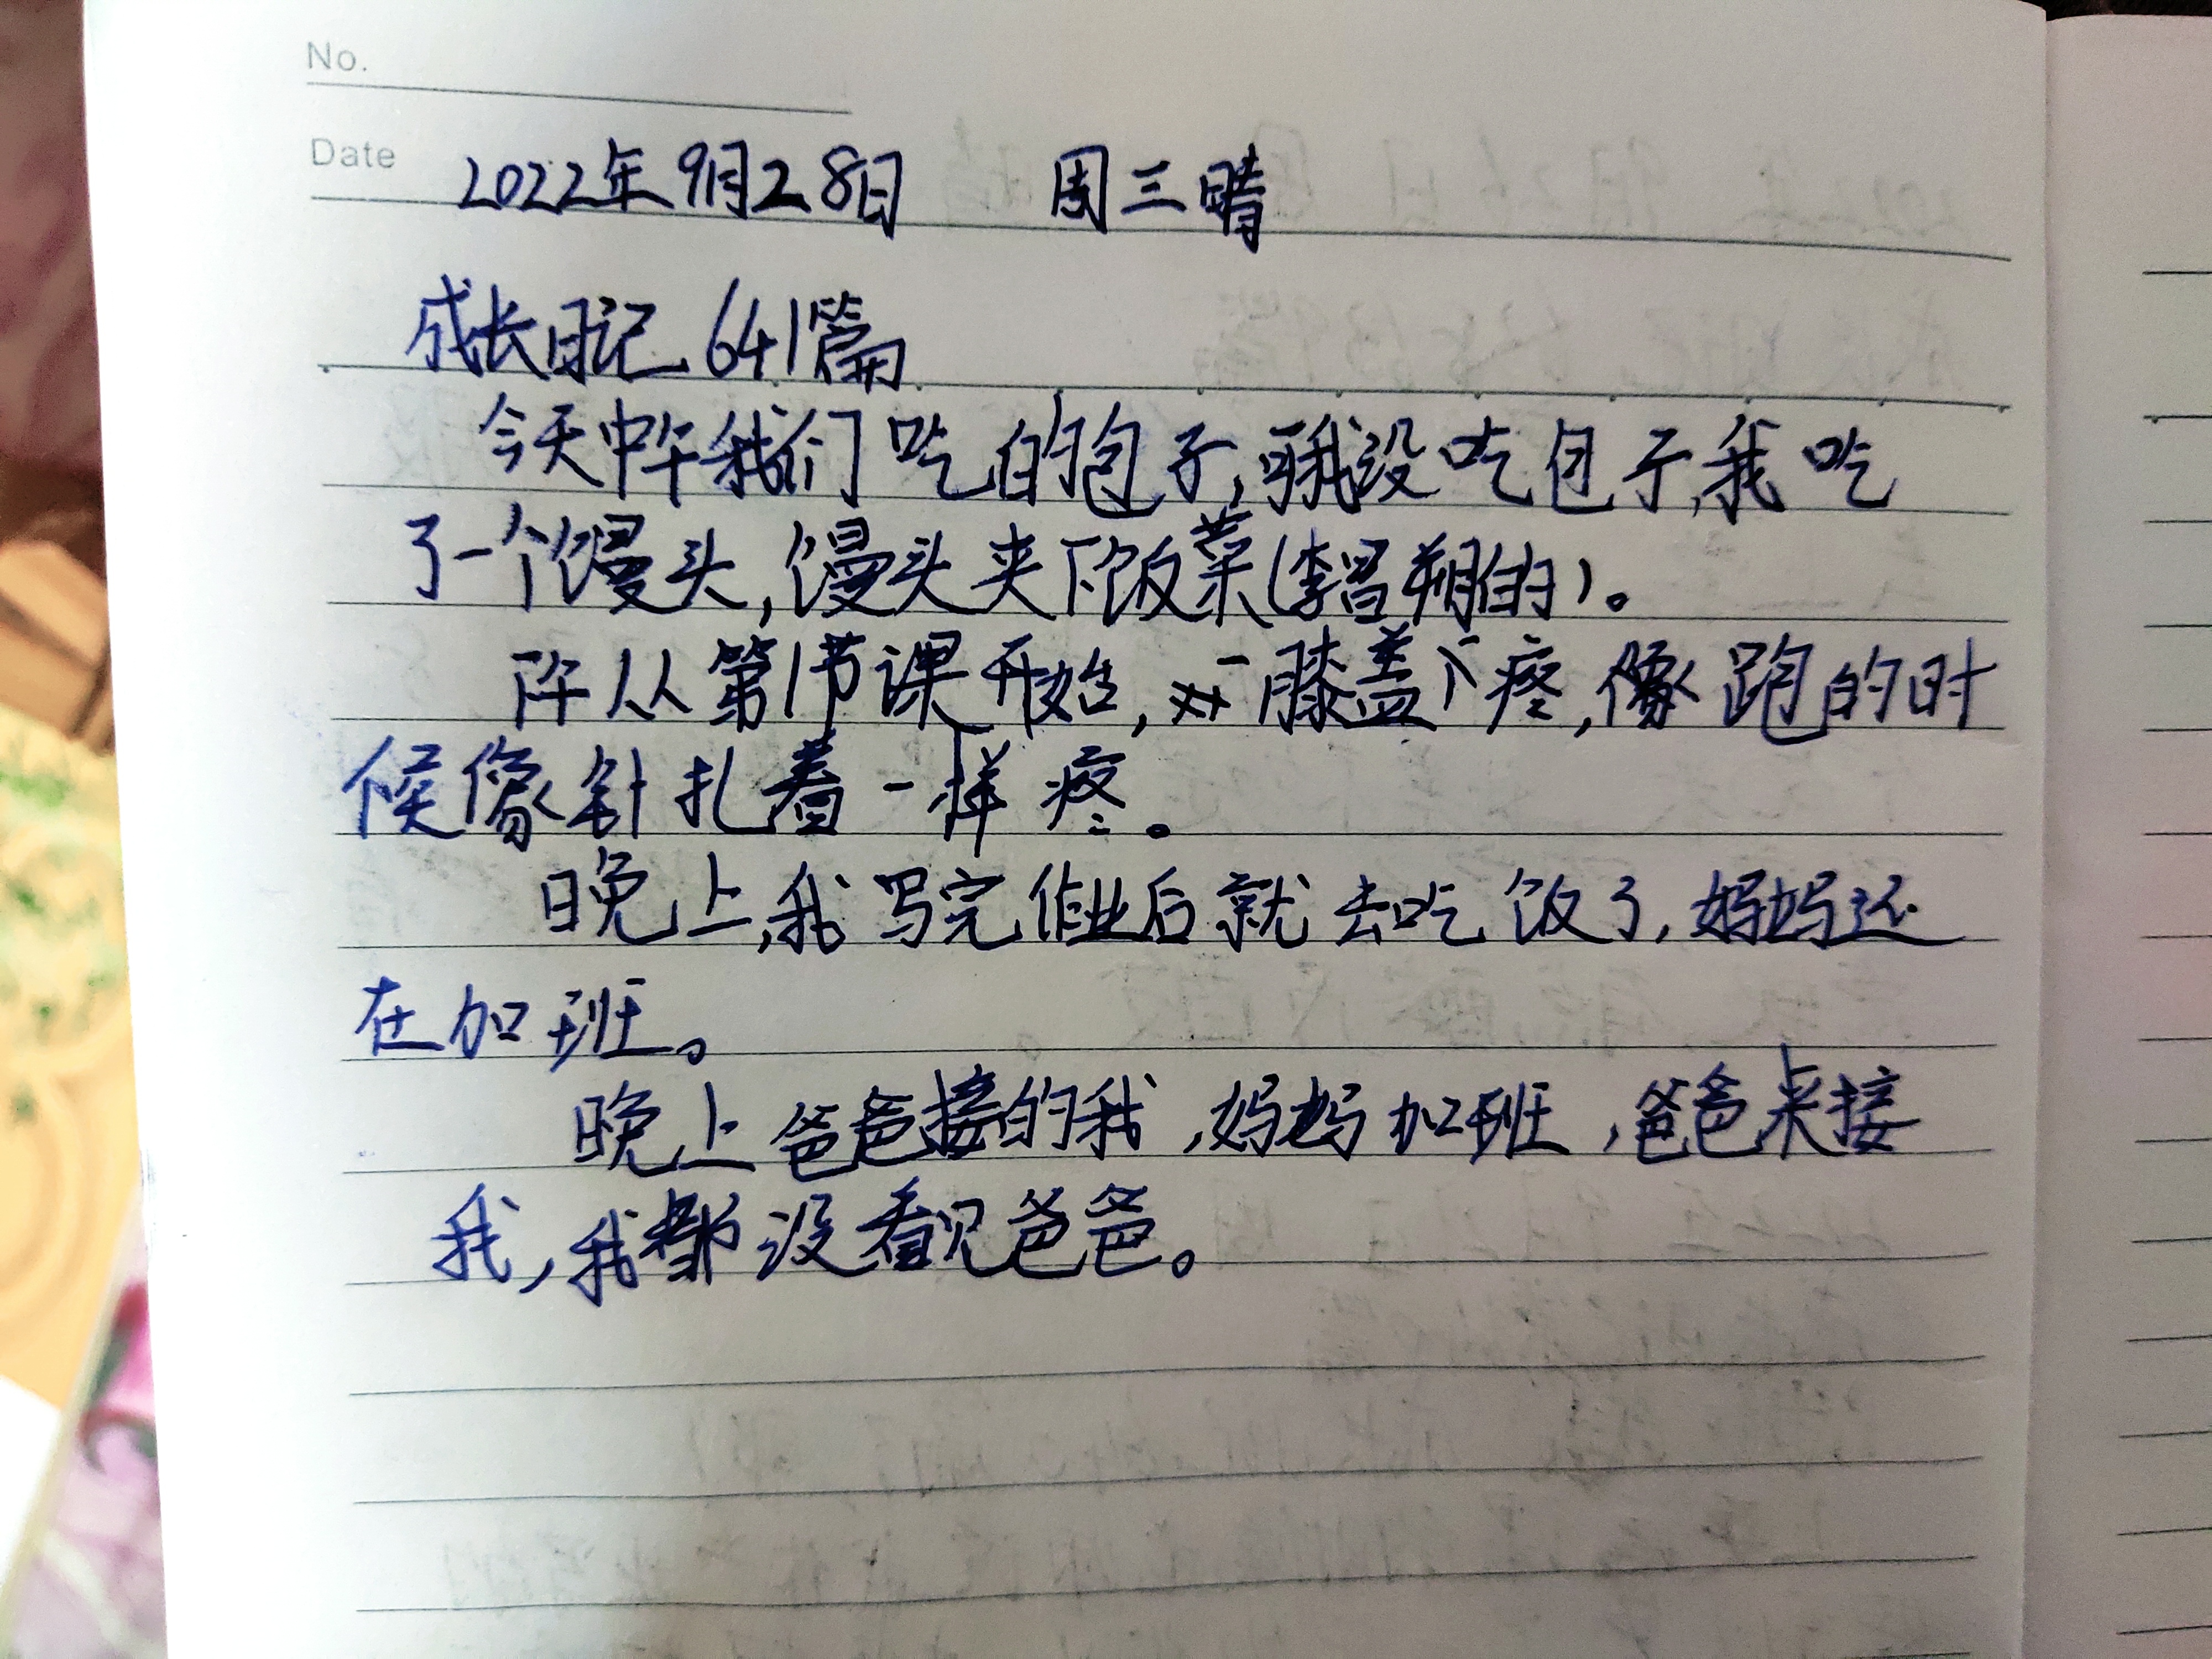 No.
Date 2022年9月28日 周三晴
成长日记641篇
今天中午我们吃的包子,我没吃包子,我吃
了一个馒头,馒头夹下饭菜(李昌朔的)。
下午从第1节课开始,膝盖下疼,像跑的时
候像针扎着一样疼。
晚上,我写完作业后就去吃饭了,妈妈还
在加班。
晚上爸爸接的我,妈妈加班,爸爸来接
我,我都没看见爸爸。